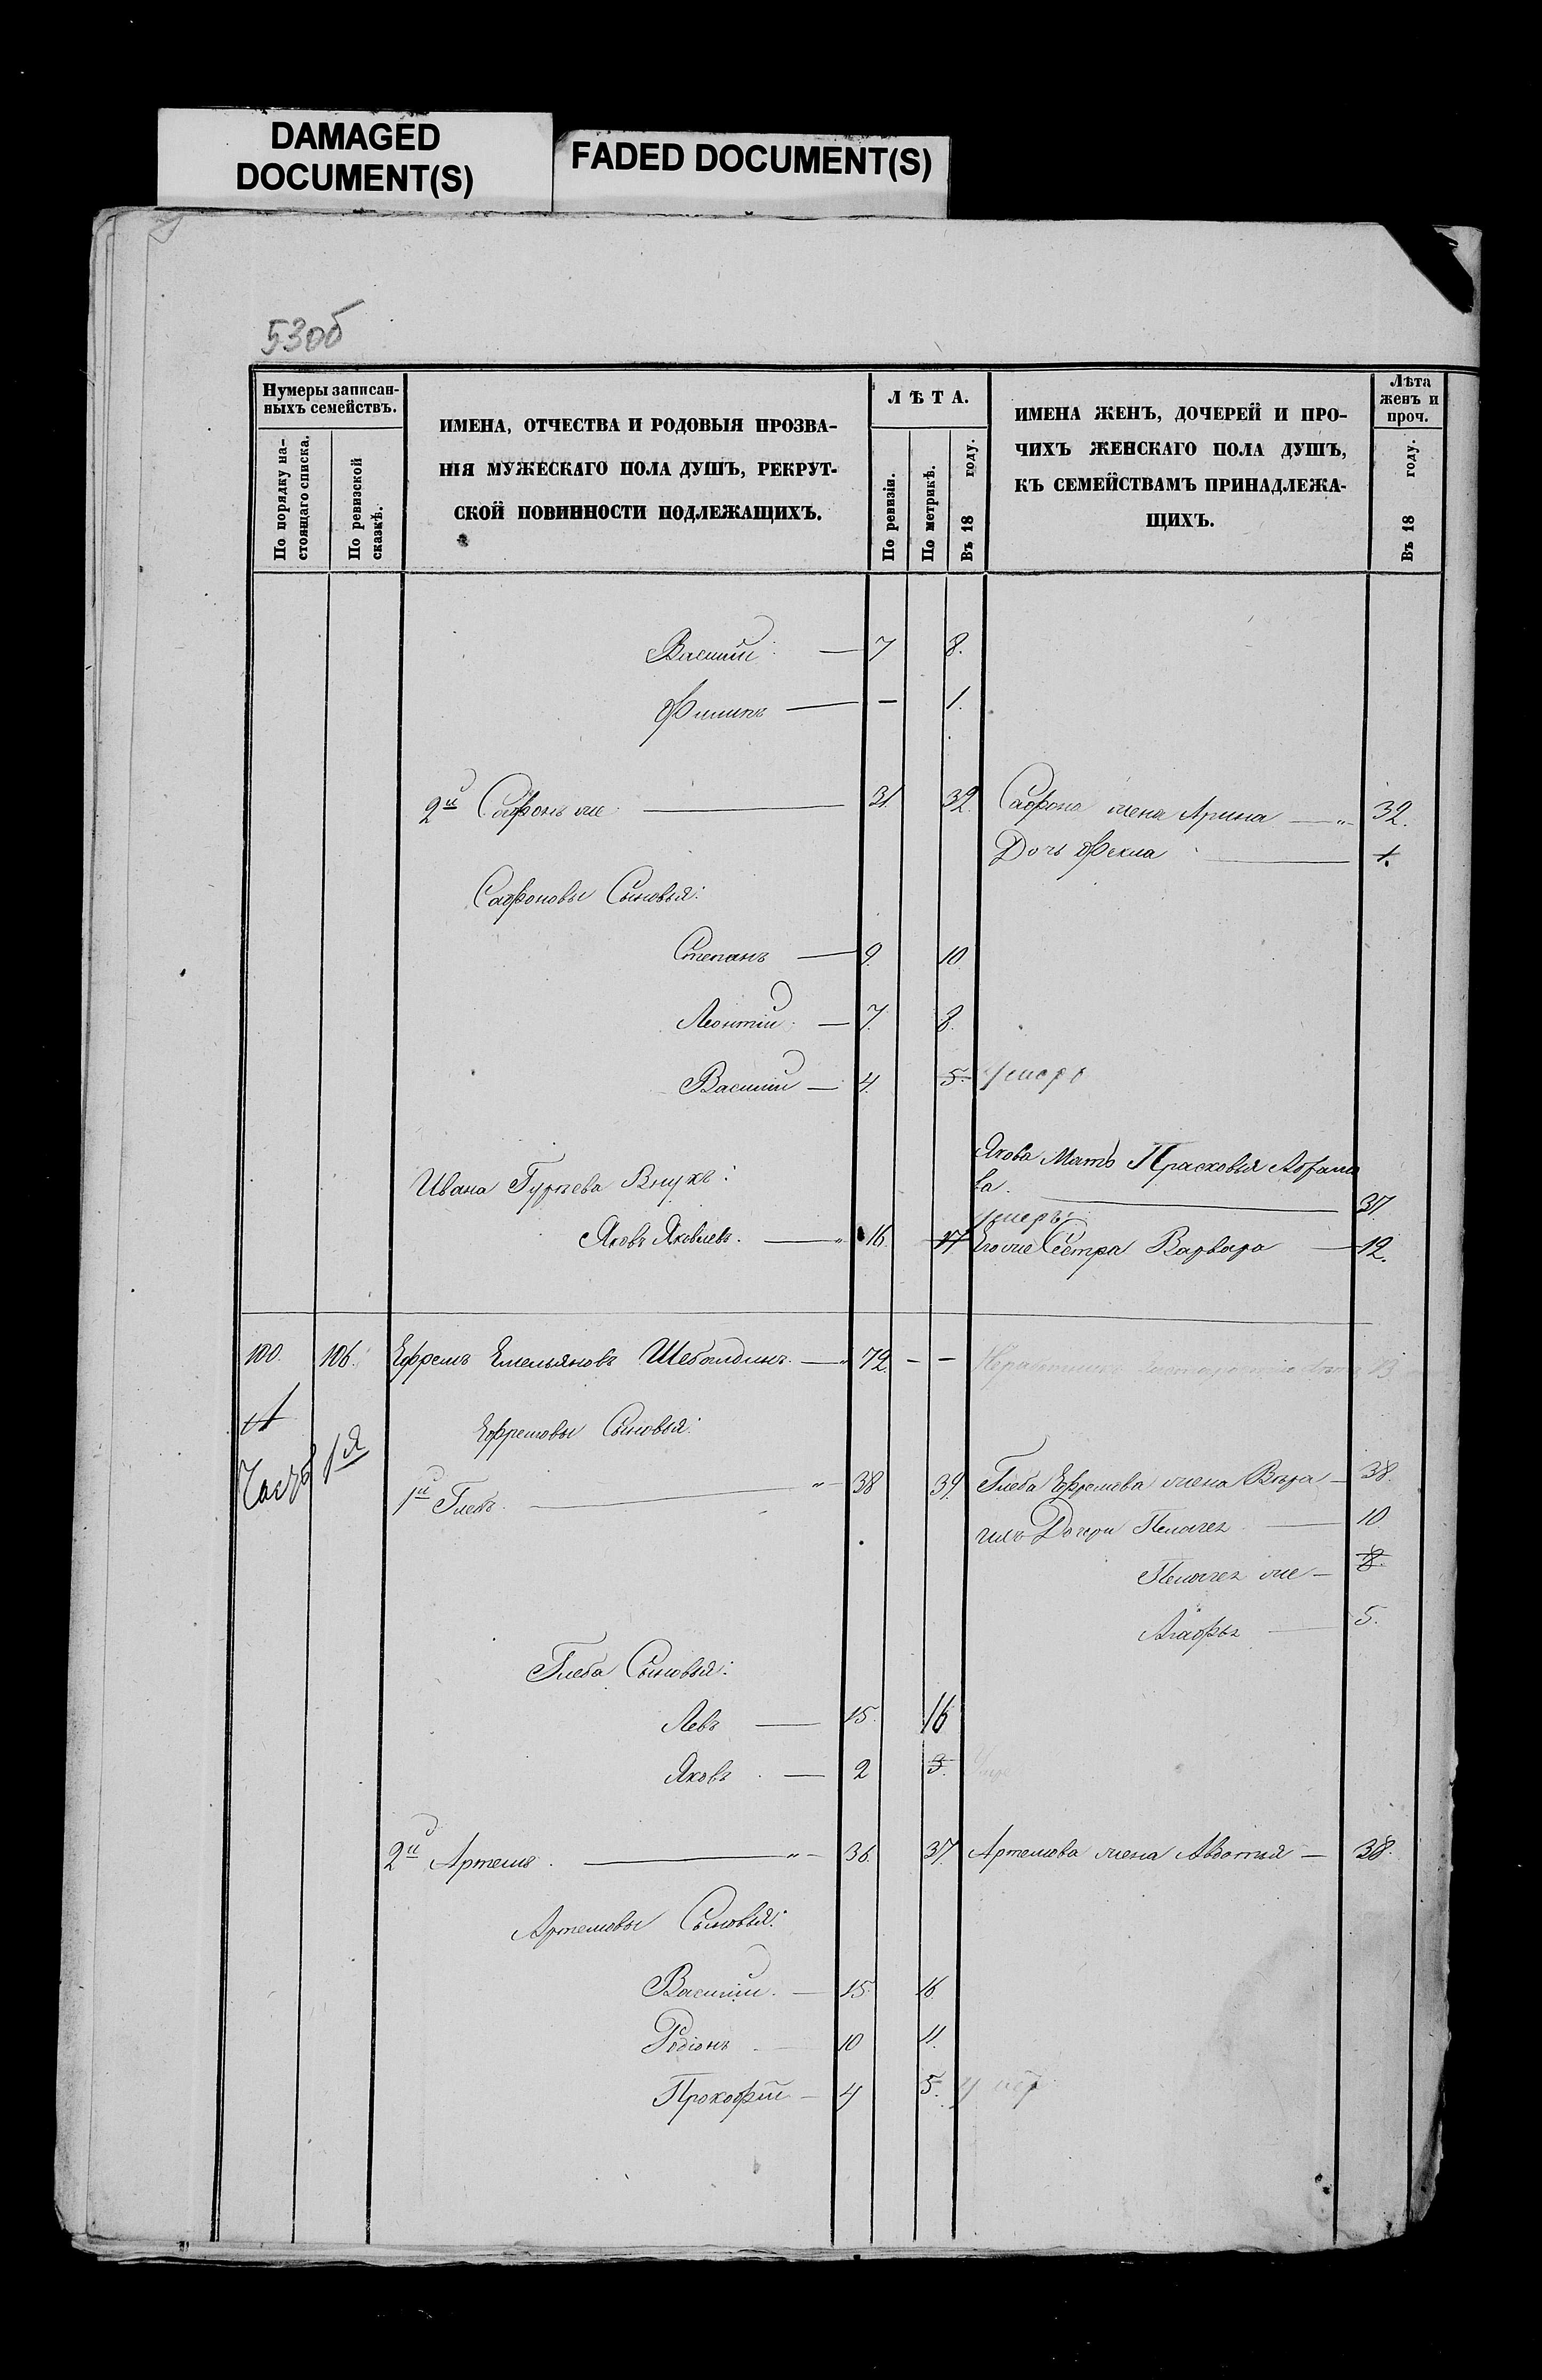 DAMAGED
DOCUMENT(S)
FADED DOCUMENT(S)
53об
Нумеры записан-
ныхъ семействъ.
По порядку на-
стоящаго списка.
По ревизской
сказкѣ.
ИМЕНА, ОТЧЕСТВА И РОДОВЫЯ ПРОЗВА-
НІЯ МУЖЕСКАГО ПОЛА ДУШЪ, РЕКРУТ-
СКОЙ ПОВИННОСТИ ПОДЛЕЖАЩИХЪ.
ЛѢТА.
По ревизіи.
По метрикѣ.
Въ 18 году.
ИМЕНА ЖЕНЪ, ДОЧЕРЕЙ И ПРО-
ЧИХЪ ЖЕНСКАГО ПОЛА ДУШЪ,
КЪ СЕМЕЙСТВАМЪ ПРИНАДЛЕЖА-
ЩИХЪ.
Лѣта
женъ и
проч.
Въ 18 году.
Василій — 7 8.
Филипъ — — 1.
2й Сафонъ же — 31. 32. Сафона жена Арина — " 32.
Дочь Фекла — 1.
Сафоновы Сыновья:
Степанъ — 9. 10.
Леонтій — 7. 8.
Василій — 4. 5. умеръ
Якова Мать Прасковья Абрамо
ва. — 37.
Ивана Гурьева Внукъ:
умеръ
Яковъ Яковлевъ. — " 16. 17 Его же Сестра Варвара — 12.
100. 106. Ефремъ Емельяновъ — " 72. — —
Ефремовы Сыновья:
Часть 1я
1й Глебъ. — " — 38 39. Глеба Ефремова жена Вѣра — 38.
ихъ Дочери Пелагея — 10
Пелагея же — 8.
Агафья — 5.
Глеба Сыновья:
Левъ — 15. 16
Яковъ — 2 3.
2й Артемъ. — " — 36. 37. Артемова жена Авдотья — 38.
Артемовы Сыновья:
Василій. — 15. 16.
Родіонъ — 10 11.
Прокофій — 4 5. умер